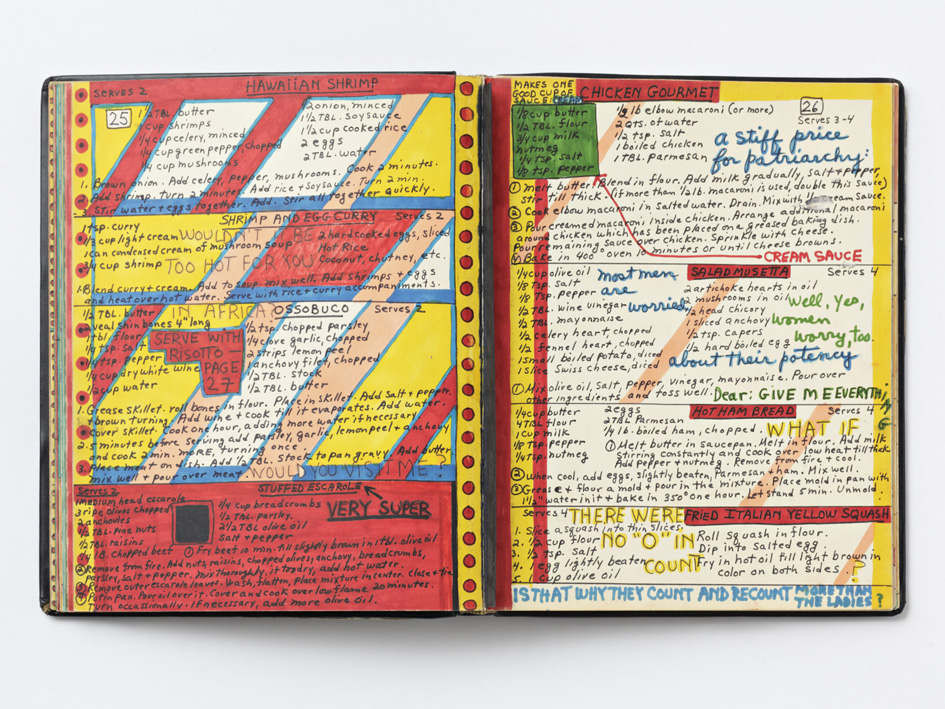 HAWAIIAN SHRIMP
SERVES 2
25
1½ TBL. butter
cup shrimps
¼ cup celery, minced
¼ cup green pepper, chopped
¼ cup mushrooms
2 onion, minced
1½ TBL. Soy sauce
1½ cup cooked rice
2 eggs
2 TBL. water
1. Brown onion. Add celery, pepper, mushrooms. Cook 2 minutes.
2. Add shrimp. Turn 2 minutes. Add rice + Soy sauce. Turn 2 min.
Stir water + eggs together. Add. Stir all together quickly.
SHRIMP AND EGG CURRY
Serves 2
1 tsp. curry
cup light cream
1 can condensed cream of mushroom soup
¾ cup shrimp
2 hard cooked eggs, sliced
Hot Rice
Coconut, chutney, etc.
WOULDN'T BE
TOO HOT FOR YOU
1. Blend curry + cream. Add to soup. mix well. Add shrimps + eggs
and heat over hot water. Serve with rice + curry accompaniments.
IN AFRICA
OSSOBUCO
Serves 2
½ TBL. butter
veal shin bones 4" long
1 TBL. flour
¼ tsp. Salt
tsp. Pepper
¼ cup dry white wine
½ cup water
½ tsp. chopped parsley
¼ clove garlic, chopped
2 strips lemon peel
anchovy filet, chopped
½ TBL. Stock
½ TBL. butter
SERVE WITH
RISOTTO
PAGE
27
1. Grease skillet. roll bones in flour. Place in skillet. Add Salt + pepper.
brown turning. Add wine + cook till it evaporates. Add water.
Cover skillet. Cook one hour, adding more water if necessary.
2. 5 minutes before serving add parsley, garlic, lemon peel + anchovy
and cook 2 min. more, turning once.
3. Place meat on dish. Add ½ TBL. Stock to pan gravy. Add butter
mix well + pour over meat.
WOULD YOU VISIT ME?
Serves 2
STUFFED ESCAROLE
VERY SUPER
1 medium head escarole
3 ripe olives chopped
2 anchovies
½ TBL. pine nuts
½ TBL. raisins
¼ lb. chopped beef
¼ cup breadcrumbs
½ TBL. parsley
2½ TBL. olive oil
Salt + pepper
1 Fry beef 10 min. till slightly brown in 1 TBL. olive oil.
2 Remove from fire. Add nuts, raisins, chopped olives, anchovy, breadcrumbs,
parsley, salt + pepper. mix thoroughly, if too dry, add hot water.
3 Remove outer escarole leaves. Wash, flatten, place mixture in center. Close + tie
4 Put in pan. Pour oil over it. Cover and cook over low flame 20 minutes.
Turn occasionally. if necessary, add more olive oil.
MAKES ONE
GOOD CUP OF
SAUCE:
CREAM
CHICKEN GOURMET
26
Serves 3-4
⅛ cup butter
½ TBL. flour
cup milk
nutmeg
¼ tsp. salt
⅛ tsp. pepper
½ lb elbow macaroni (or more)
2 qts. of water
½ tsp. salt
1 boiled chicken
1 TBL. parmesan
a stiff price
for patriarchy:
1 melt butter. Blend in flour. Add milk gradually, salt + pepper,
stir till thick. (if more than ½ lb. macaroni is used, double this Sauce)
2 Cook elbow macaroni in Salted water. Drain. Mix with cream Sauce.
3 Pour creamed macaroni inside chicken. Arrange additional macaroni
around chicken which has been placed on a greased baking dish.
Pour remaining Sauce over chicken. Sprinkle with cheese.
Bake in 400° oven 10 minutes or until Cheese browns.
CREAM SAUCE
SALAD MUSETTA
Serves 4
¼ cup olive oil
⅛ tsp. Salt
⅛ Tsp. pepper
½ TBL. wine vinegar
½ TBL. mayonnaise
½ celery heart, chopped
½ fennel heart, chopped
1 small boiled potato, diced
1 slice Swiss cheese, diced
2 artichoke hearts in oil
2 mushrooms in oil
½ head chicory
1 sliced anchovy
½ tsp. Capers
½ hard boiled egg
most men
are
worried
about their potency
Well, Yes,
women
worry, too.
1 Mix olive oil, Salt, pepper, vinegar, mayonnaise. Pour over
other ingredients and toss well.
Dear: GIVE ME EVERYTHING
HOT HAM BREAD
Serves 4
¼ cup butter
4 TBL flour
1 cup milk
⅛ tsp pepper
¼ tsp. nutmeg
2 eggs
2 TBL. Parmesan
¼ lb. boiled ham, chopped.
WHAT IF
1 Melt butter in saucepan. Melt in flour. Add milk
Stirring constantly and cook over low heat till thick.
Add pepper + nutmeg. Remove from fire + cool.
2 When cool, add eggs, slightly beaten, Parmesan + ham. Mix well.
3 Grease + flour a mold + pour in the mixture. Place mold in pan with
1½" water in it + bake in 350° one hour. Let stand 5 min. Unmold.
Serves 4
THERE WERE
FRIED ITALIAN YELLOW SQUASH
1. Slice a squash into thin slices
2. ½ cup flour
3. ½ tsp. Salt
4. 1 egg slightly beaten
cup olive oil
Roll Squash in flour.
Dip into Salted egg.
Fry in hot oil till light brown in
color on both sides
NO "O" IN
COUNT
?
IS THAT WHY THEY COUNT AND RECOUNT MORE THAN
THE LADIES?